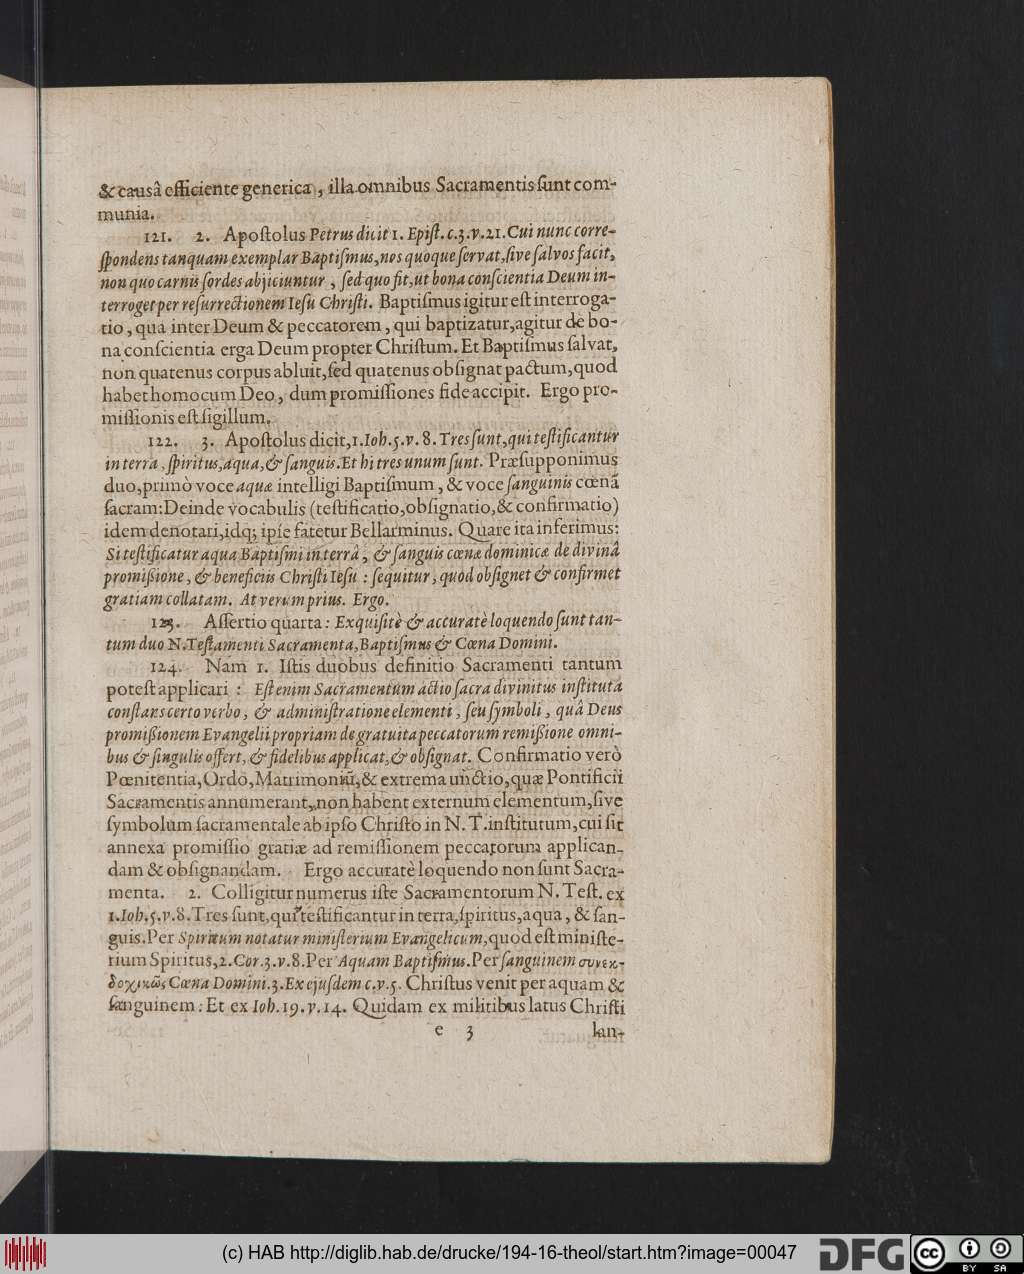 & causâ efficiente generica, illa omnibus Sacramentis ſunt com-
munia.
121. 2. Apoſtolus Petrus dicit 1. Epiſt. c.3. v.21. Cui nunc corre-
ſpondens tanquam exemplar Baptiſmus, nos quoque ſervat, ſive ſalvos facit,
non quo carnis ſordes abjiciuntur, ſed quo fit, ut bona conſcientia Deum in-
terroget per reſurrectionem Ieſu Chriſti. Baptiſmus igitur eſt interroga-
tio, qua inter Deum & peccatorem, qui baptizatur, agitur de bo-
na conſcientia erga Deum propter Chriſtum. Et Baptiſmus ſalvat,
non quatenus corpus abluit, ſed quatenus obſignat pactum, quod
habet homo cum Deo, dum promiſſiones fide accipit. Ergo pro-
miſſionis eſt ſigillum.
122. 3. Apoſtolus dicit, 1. Ioh. 5. v. 8. Tres ſunt, qui teſtificantur
in terra, ſpiritus, aqua, & ſanguis. Et hi tres unum ſunt. Præſupponimus
duo, primò voce aquæ intelligi Baptiſmum, & voce ſanguinis cœnã
ſacram: Deinde vocabulis (teſtificatio, obſignatio, & confirmatio)
idem denotari, idq; ipſe fatetur Bellarminus. Quare ita inferimus:
Si teſtificatur aqua Baptiſmi in terrâ, & ſanguis cœnæ dominicæ de divinâ
promiſſione, & beneficiis Chriſti Ieſu: ſequitur, quod obſignet & confirmet
gratiam collatam. At verum prius. Ergo.
123. Aſſertio quarta: Exquiſitè & accuratè loquendo ſunt tan-
tum duo N. Teſtamenti Sacramenta, Baptiſmus & Cœna Domini.
124. Nam 1. Iſtis duobus definitio Sacramenti tantum
poteſt applicari: Eſt enim Sacramentum actio ſacra divinitus inſtituta
conſtans certo verbo, & adminiſtratione elementi, ſeu ſymboli, quâ Deus
promiſſionem Evangelii propriam de gratuita peccatorum remiſſione omni-
bus & ſingulis offert, & fidelibus applicat, & obſignat. Confirmatio verò
Pœnitentia, Ordo, Matrimoniũ, & extrema unctio, quæ Pontificii
Sacramentis annumerant, non habent externum elementum, ſive
ſymbolum ſacramentale ab ipſo Chriſto in N. T. inſtitutum, cui ſit
annexa promiſſio gratiæ ad remiſſionem peccatorum applican-
dam & obſignandam. Ergo accuratè loquendo non ſunt Sacra-
menta. 2. Colligitur numerus iſte Sacramentorum N. Teſt. ex
1. Ioh. 5. v. 8. Tres ſunt, qui teſtificantur in terra, ſpiritus, aqua, & ſan-
guis. Per Spiritum notatur miniſterium Evangelicum, quod eſt miniſte-
rium Spiritus, 2. Cor. 3. v. 8. Per Aquam Baptiſmus. Per ſanguinem συνεκ-
δοχικῶς Cœna Domini. 3. Ex ejuſdem c. v. 5. Chriſtus venit per aquam &
ſanguinem: Et ex Ioh. 19. v. 14. Quidam ex militibus latus Chriſti
e 3 lan-
(c) HAB http://diglib.hab.de/drucke/194-16-theol/start.htm?image=00047
DFG
cc BY SA